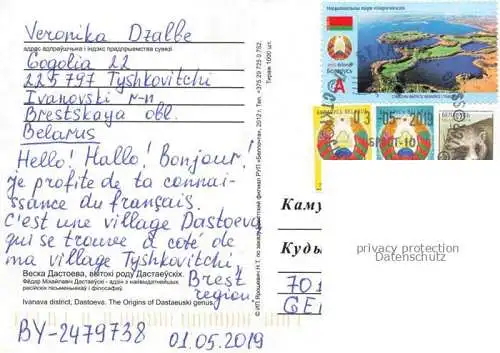 Veronika Dzalbe
адрас адпраўшчыка і індэкс прадпрыемства сувязі
Gogolia 22
225797 Tyshkovitchi
Ivanovski r-n
Brestskaya obl.
Belarus
Hello! Hallo! Bonjour!
je profite de ta connai-
ssance du français.
C'est une village Dastoeva
qui se trouve à côté de
ma village Tyshkovitchi,
Brest
region.
Вёска Дастоева, вытокі роду Дастаеўскіх.
Фёдар Міхайлавіч Дастаеўскі - адзін з найвыдатнейшых
расійскіх пісьменнікаў і філосафаў.
Ivanava district, Dastoeva. The Origins of Dastaeuski genus.
BY-2479738
01.05.2019
2012 г. Тел. +375 29 725 0 752
Тираж 1000 шт.
Нацыянальны парк «Нарачанскі»
БЕЛАРУСЬ
A
05 2019
Каму
Куды
701
GE
privacy protection
Datenschutz